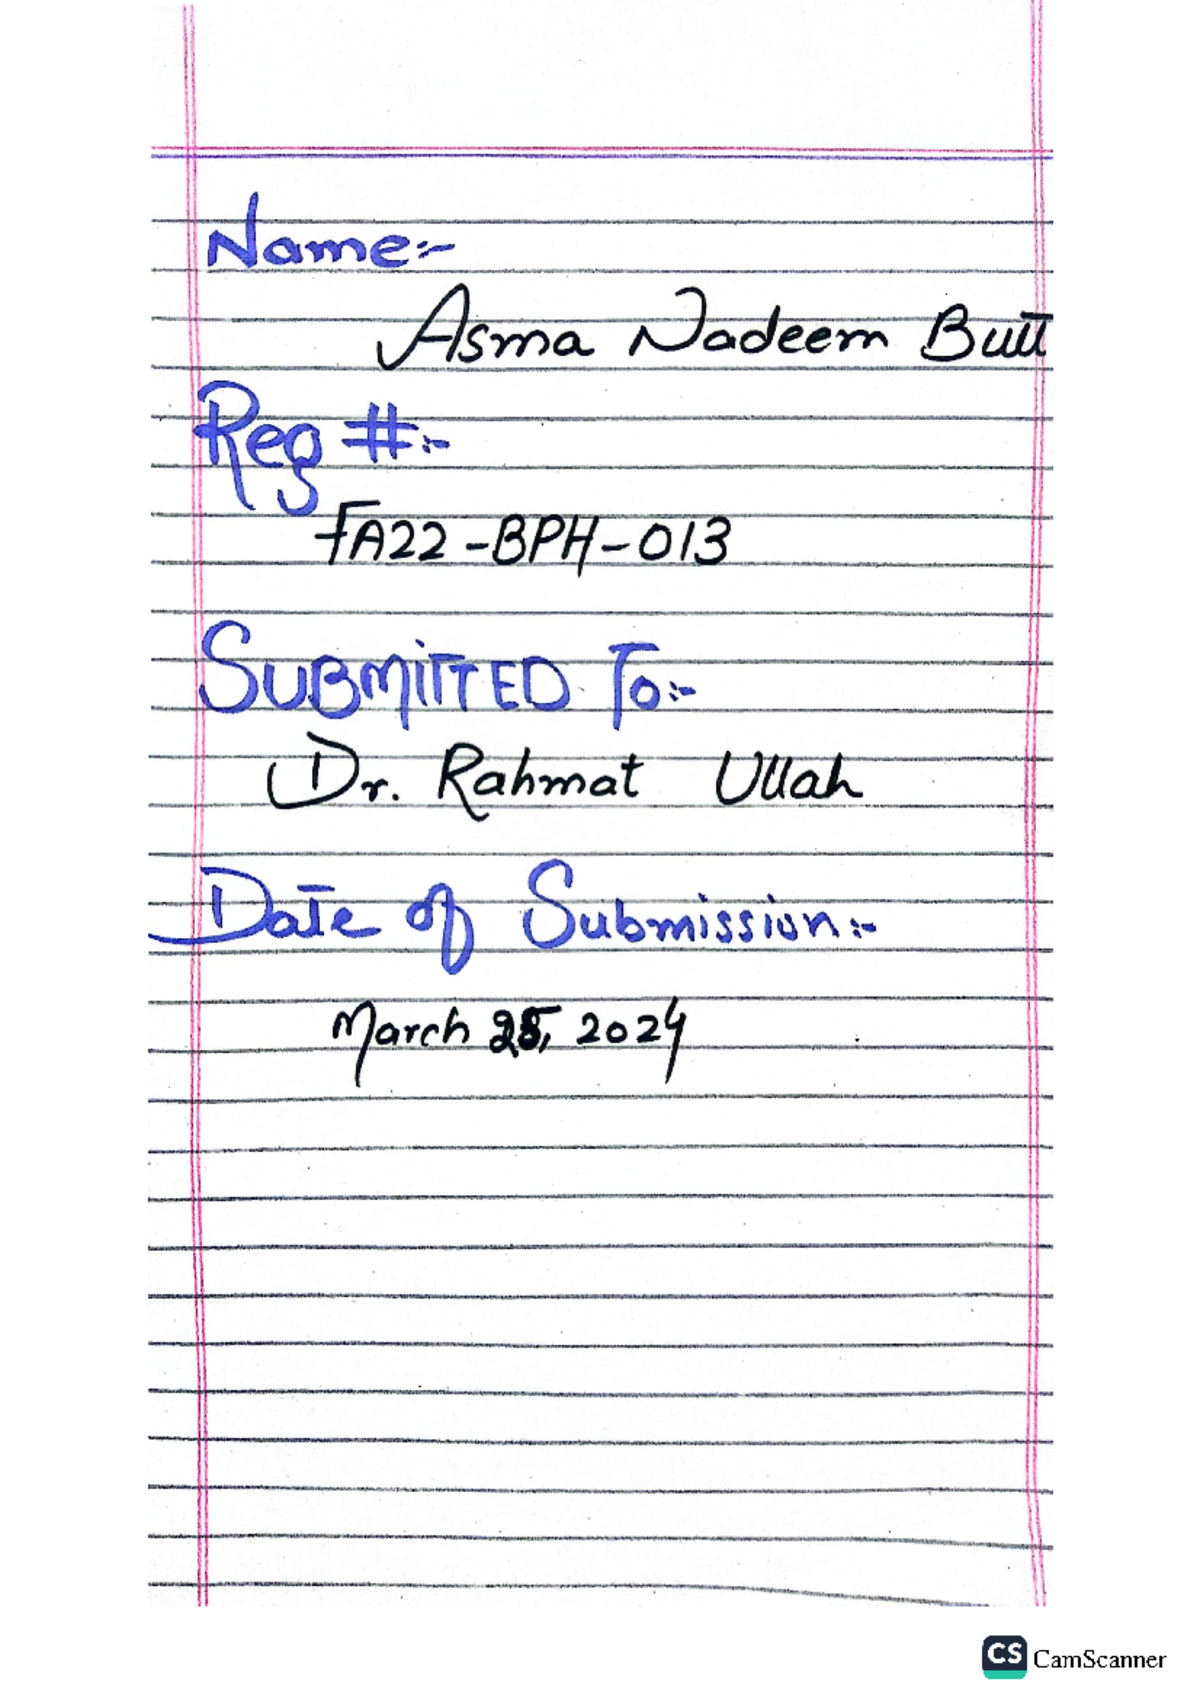 Name:-
Asma Nadeem Butt
Reg #:-
FA22-BPH-013
SUBMITTED To:-
Dr. Rahmat Ullah
Date of Submission:-
March 25, 2024
CS CamScanner